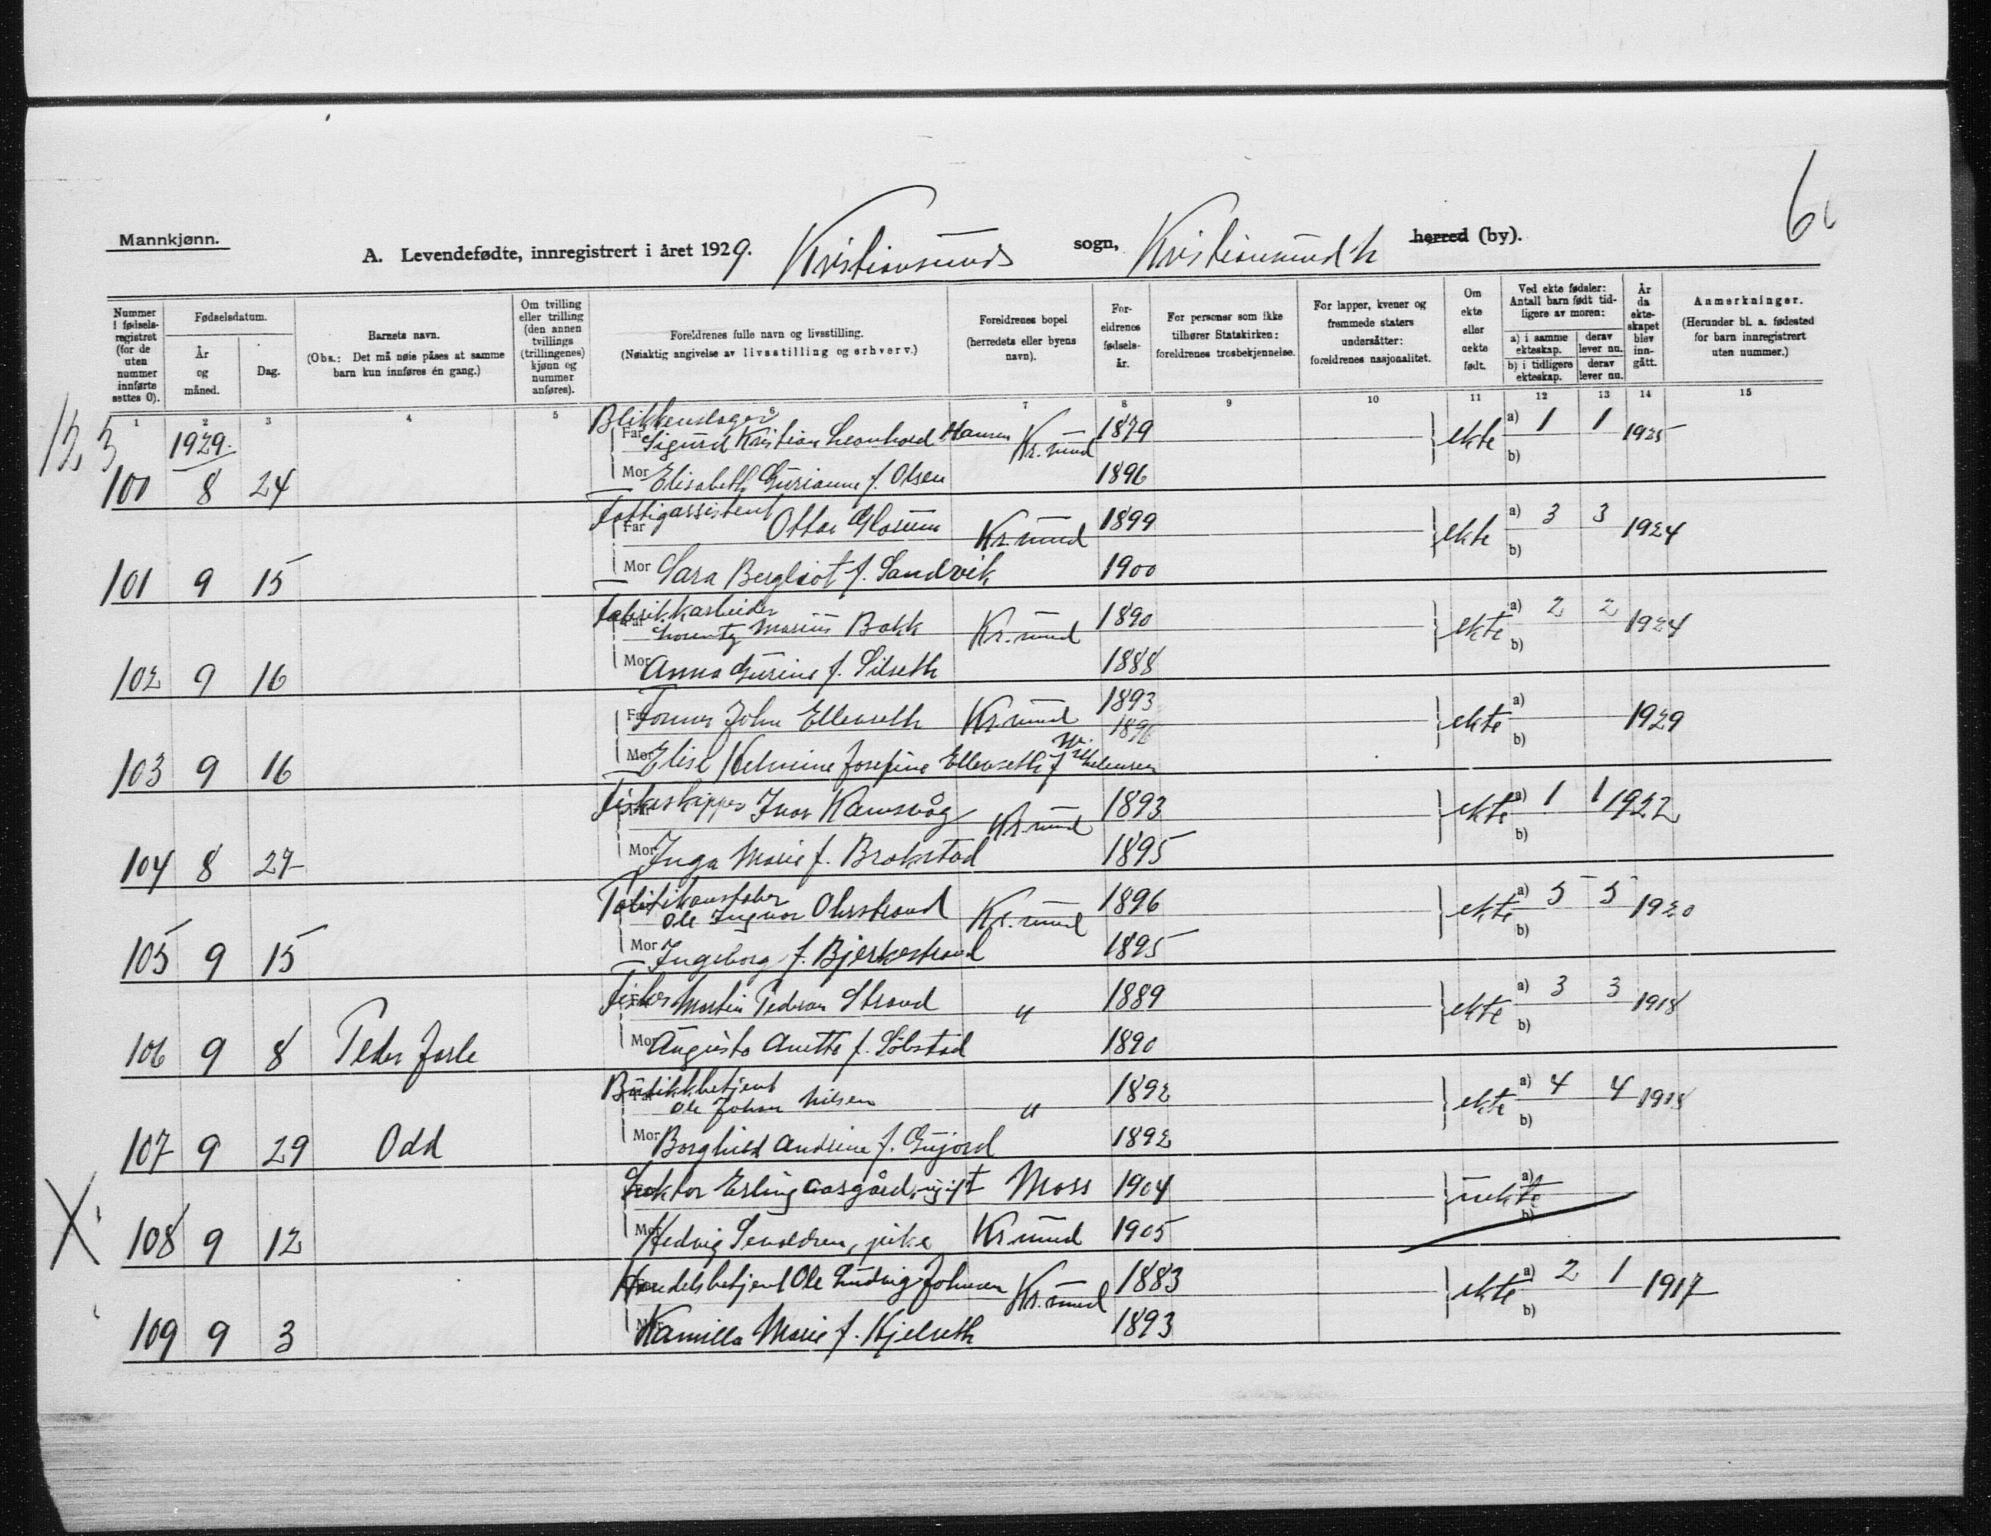 6
Mannkjønn.
A. Levendefødte, innregistrert i året 1929. Kristiansunds sogn, Kristiansund herred (by).
Nummer i fødselsregistret (for de uten nummer innførte settes 0).
Fødselsdatum.
År og måned.
Dag.
Barnets navn.
(Obs.: Det må nøie påses at samme barn kun innføres én gang.)
Om tvilling eller trilling (den annen tvillings (trillingenes) kjønn og nummer anføres).
Foreldrenes fulle navn og livsstilling.
(Nøiaktig angivelse av livsstilling og erhverv.)
Foreldrenes bopel (herredets eller byens navn).
Foreldrenes fødselsår.
For personer som ikke tilhører Statskirken: foreldrenes trosbekjennelse.
For lapper, kvener og fremmede staters undersåtter: foreldrenes nasjonalitet.
Om ekte eller uekte født.
Ved ekte fødsler: Antall barn født tidligere av moren:
a) i samme ekteskap.
derav lever nu.
b) i tidligere ekteskap.
derav lever nu.
År da ekteskapet blev inngått.
Anmerkninger.
(Herunder bl. a. fødested for barn innregistrert uten nummer.)
1 2 3 4 5 6 7 8 9 10 11 12 13 14 15
1929.
Blikkenslager
Far Sigurd Kristian Leonhard Hansen Kr.sund 1879 ekte a) 1 1 1925
b)
100 8 24 Mor Elisabeth Gurianne f. Olsen 1896
Fattigassistent
Far Ottar Glasum Kr.sund 1899 ekte a) 3 3 1924
b)
101 9 15 Mor Sara Bergliot f. Sandvik 1900
Fabrikkarbeider
Far Lorentz Marius Bakk Kr.sund 1890 ekte a) 2 2 1924
b)
102 9 16 Mor Anna Gurine f. Silseth 1888
Far John Ellenseth Kr.sund 1893 ekte a) 1929
1896 b)
103 9 16 Mor Elise Helmine Josefine Ellenseth f. Wilhelmsen
Fiskeskipper
Far Ivar Ramsvåg Kr.sund 1893 ekte a) 1 1 1922
b)
104 8 27 Mor Inga Marie f. Brakstad 1895
Politikonstabel
Ole Ingvar Ohrstrand Kr.sund 1896 ekte a) 5 5 1920
b)
105 9 15 Mor Ingeborg f. Bjerkestrand 1895
Fisker
Far Martin Pedersen Strand " 1889 ekte a) 3 3 1918
b)
106 9 8 Peder Jarle Mor Augusta Anette f. Sølstad 1890
Butikkbetjent
Far Ole Johan Nilsen " 1892 ekte a) 4 4 1918
b)
107 9 29 Odd Mor Borghild Andrine f. Gujord 1892
Lektor Erling Aasgård, ugift Moss 1904 uekte a)
b)
X 108 9 12 Mor Hedvig Sevaldsen, pike Kr.sund 1905
Handelsbetjent Ole Ludvig Johnsen Kr.sund 1883 ekte a) 2 1 1917
b)
109 9 3 Mor Kamilla Marie f. Kjelseth 1893